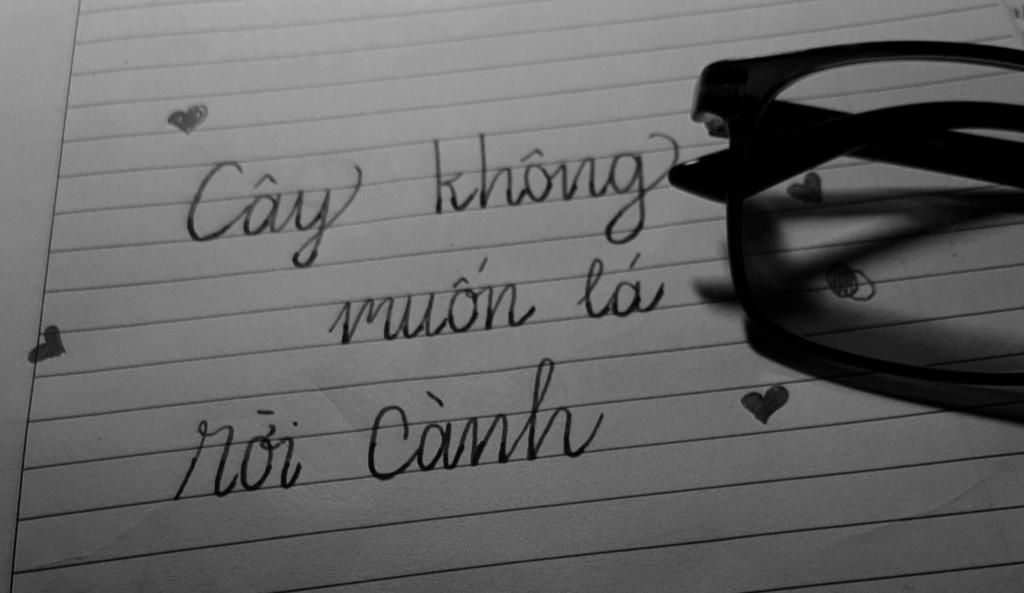 Cây không
muốn lá
rời Cành